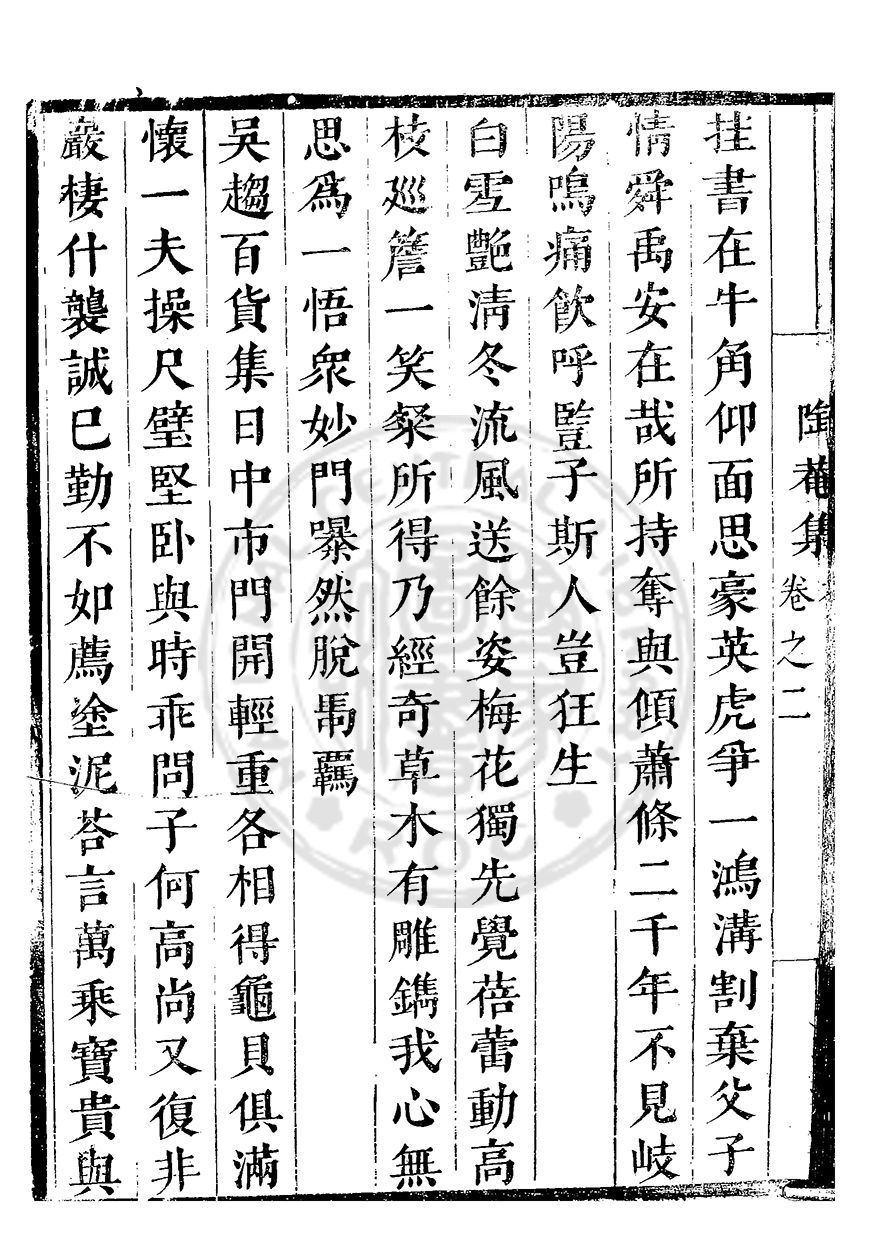 陶菴集 卷之二
挂書在牛角仰面思豪英虎爭一鴻溝割棄父子
情舜禹安在哉所持奪與傾蕭條二千年不見岐
陽鳴痛飲呼豎子斯人豈狂生
白雪艷清冬流風送餘姿梅花獨先覺蓓蕾動高
枝廵簷一笑粲所得乃經奇草木有雕鐫我心無
思爲一悟衆妙門㬥然脫馽羈
吳趨百貨集日中市門開輕重各相得龜貝俱滿
懷一夫操尺璧堅卧與時乖問子何高尚又復非
巖棲什襲誠巳勤不如薦塗泥荅言萬乘寶貴與